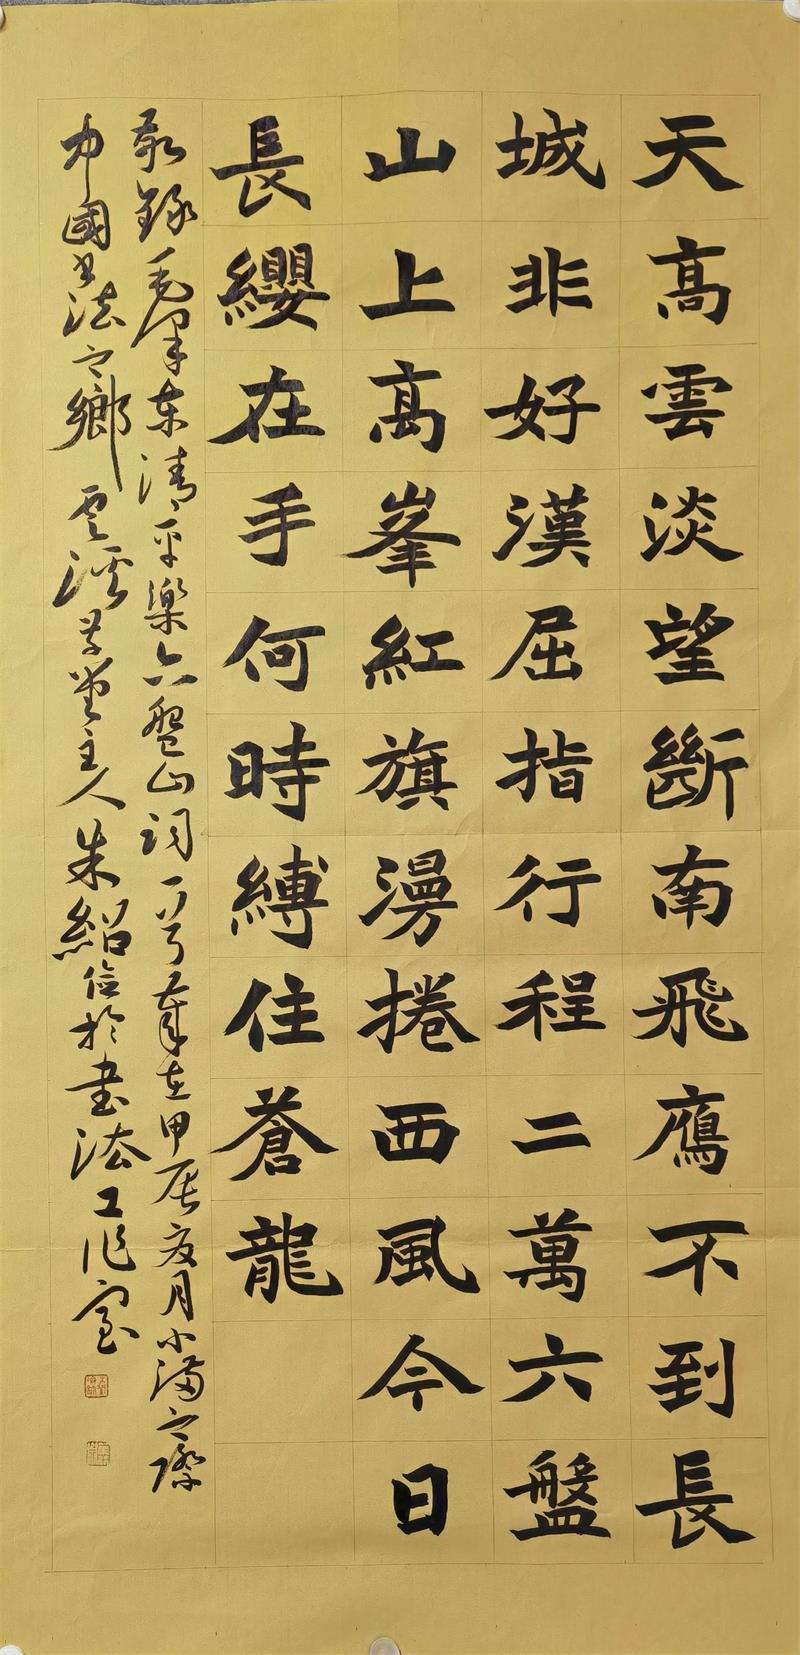 天高雲淡望斷南飛鷹不到長
城非好漢屈指行程二萬六盤
山上高峯紅旗漫捲西風今日
長纓在手何時縛住蒼龍
敬錄毛澤東清平樂六盤山詞一首歲在甲辰夏月小滿之際
中國書法之鄉雲溪草堂主人朱紹儉於書法工作室